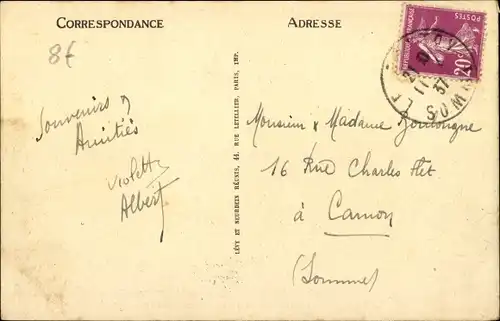 CORRESPONDANCE
ADRESSE
8€
POSTES
20c
SOMME
Souvenirs &
Amitiés
Violette
Albert
LÉVY ET NEURDEIN RÉUNIS, 44, RUE LETELLIER, PARIS, IMP.
Monsieur & Madame
16 Rue Charles
à Camon
(Somme)